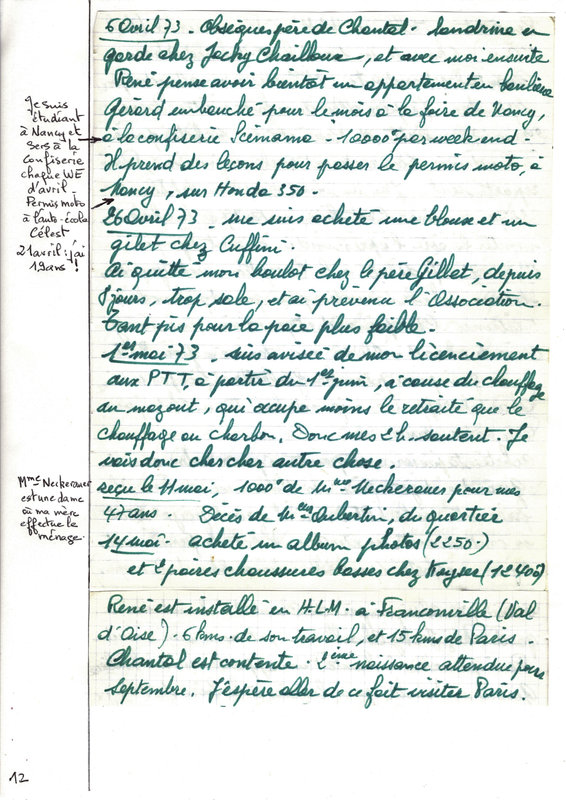 6 Avril 73. Obsèques père de Chantal. Sandrine en
garde chez Jacky Chailloux, et avec moi ensuite
René pense avoir bientôt un appartement en banlieue
Gérard embauché pour le mois à la foire de Nancy,
à la confiserie Scimama - 10000F par week end -
Il prend des leçons pour passer le permis moto, à
Nancy, sur Honda 350.
26 Avril 73. me suis acheté une blouse et un
gilet chez Cuffini.
Ai quitté mon boulot chez le père Gillet, depuis
8 jours, trop sale, et ai prévenu l'Association.
Tant pis pour la paie plus faible.
1er mai 73. suis avisée de mon licenciement
aux PTT, à partir du 1er juin, à cause du chauffage
au mazout, qui occupe moins le retraité que le
chauffage au charbon. Donc mes 2 h. sautent. Je
vais donc chercher autre chose.
reçu le 11 mai, 1000F de Mme Neckeraues pour mes
47 ans. Décès de Aubertin, du quartier
14 mai. acheté un album photos (2250.)
et 2 paires chaussures basses chez Kayser (12400)
René est installé en H.L.M. à Franconville (Val
d'Oise). 6 kms. de son travail, et 15 kms de Paris.
Chantal est contente. 2ème naissance attendue pour
Septembre. J'espère aller de ce fait visiter Paris.
Je suis
étudiant
à Nancy et
sers à la
confiserie
chaque WE
d'avril
Permis moto
à l'auto-école
Célest
21 avril : j'ai
19 ans !
Mme Neckeraues
est une dame
où ma mère
effectue le
ménage.
12